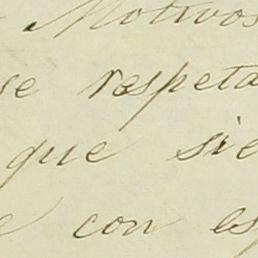 - Motivos
se respeta
que sie
con es